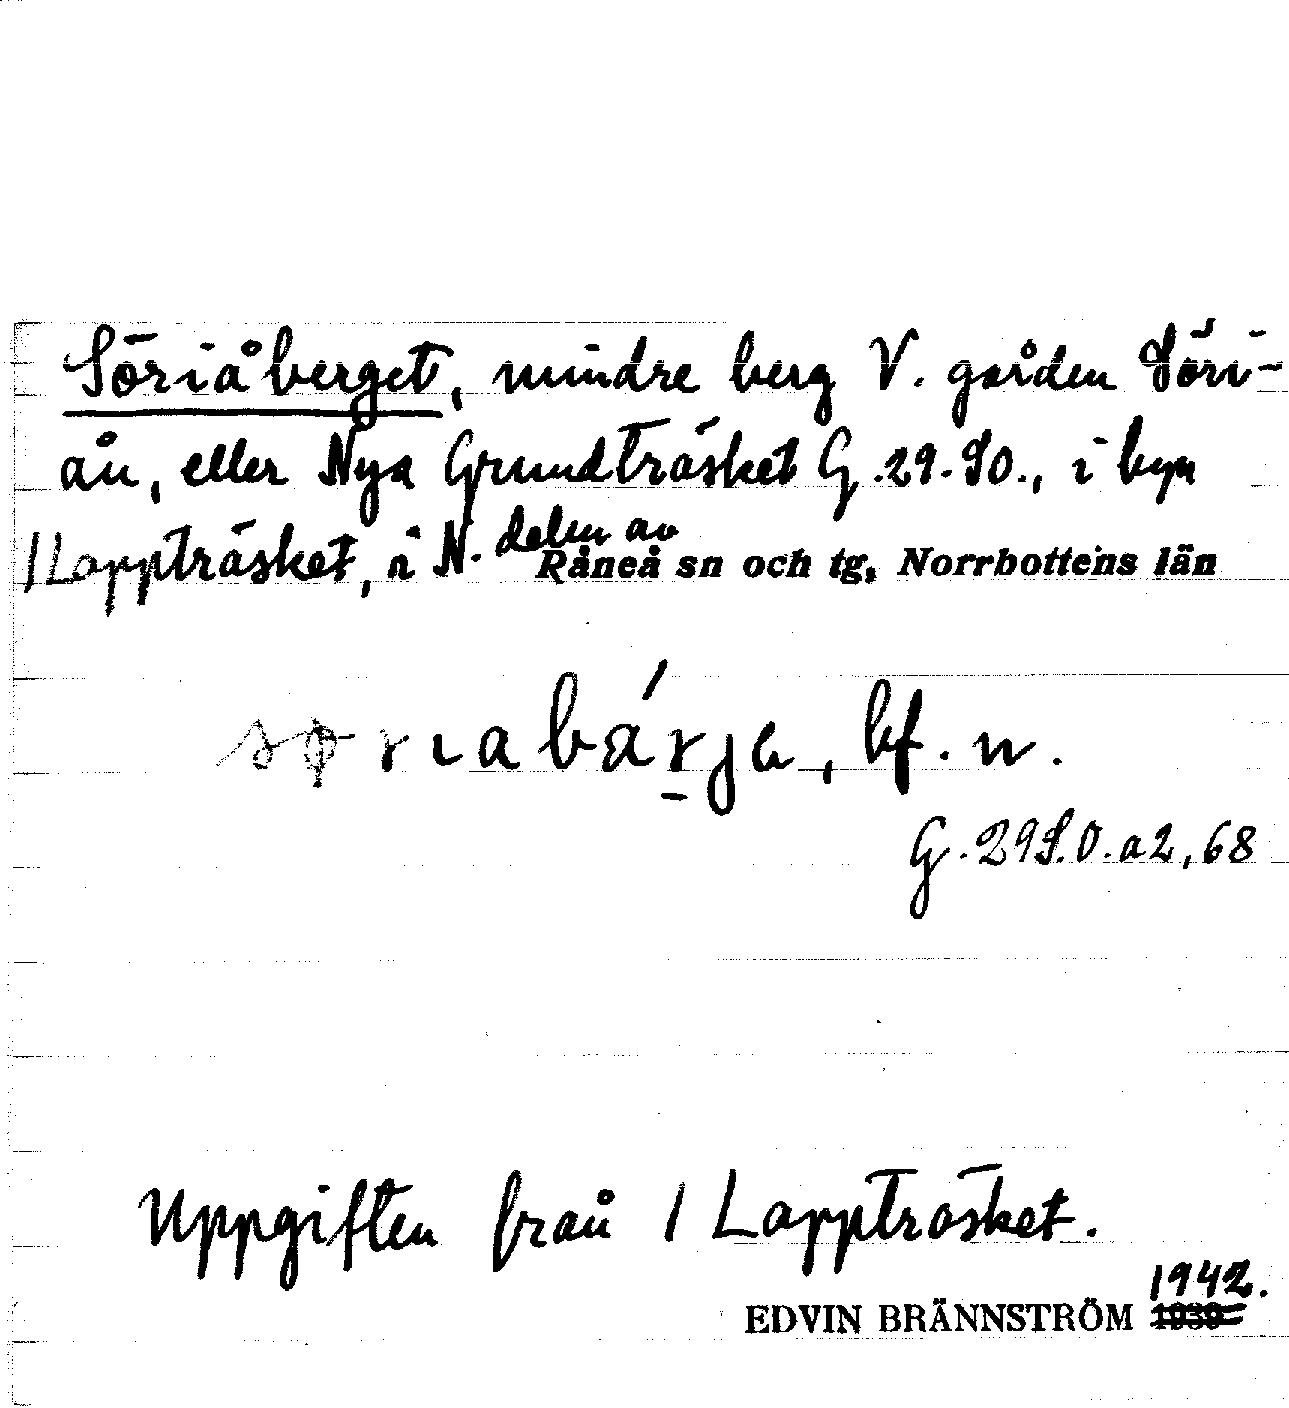 Söriåberget, mindre berg V. gården Söri-
ån, eller Nya Grundträsket G.29.SO., i byn
1 Lappträsket, i N. delen av
Råneå sn och tg, Norrbottens län
bf. n.
G.29S.O.a2,68
Uppgiften från 1 Lappträsket.
1942.
EDVIN BRÄNNSTRÖM 1939